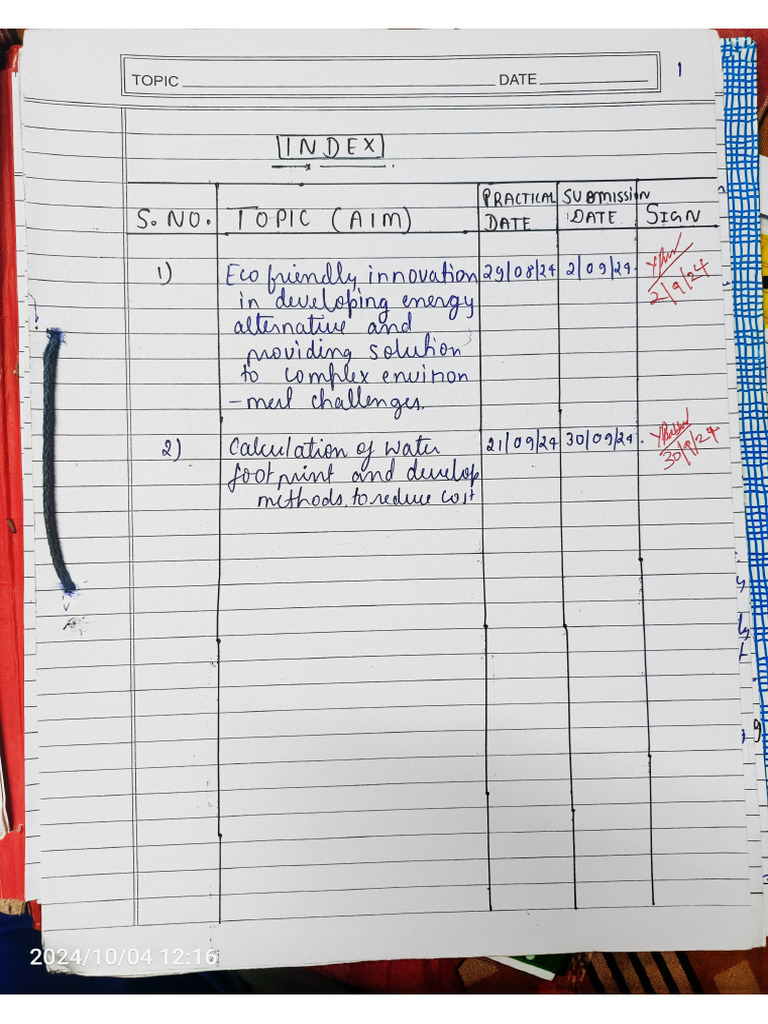 TOPIC DATE 1
INDEX
PRACTICAL SUBMISSION
S. NO. TOPIC (AIM) DATE DATE SIGN
1) Eco friendly innovation 29/08/24 2/09/24
in developing energy 2/9/24
alternative and
providing solution
to complex environ
-ment challenges.
2) Calculation of water 21/09/24 30/09/24.
footprint and develop 30/9/24
methods to reduce cost
2024/10/04 12:16